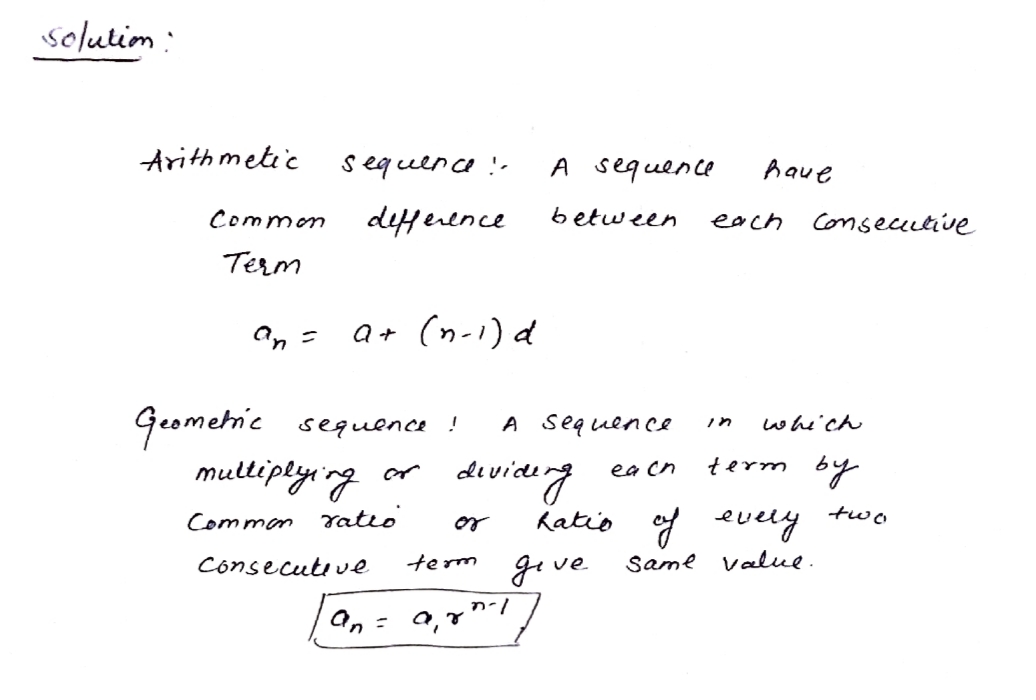 Solution :
Arithmetic sequence :- A sequence have
common difference between each consecutive
Term
aₙ = a + (n-1) d
Geometric sequence : A sequence in which
multiplying or dividing each term by
common ratio or Ratio of every two
consecutive term give same value.
aₙ = a₁ r^(n-1)